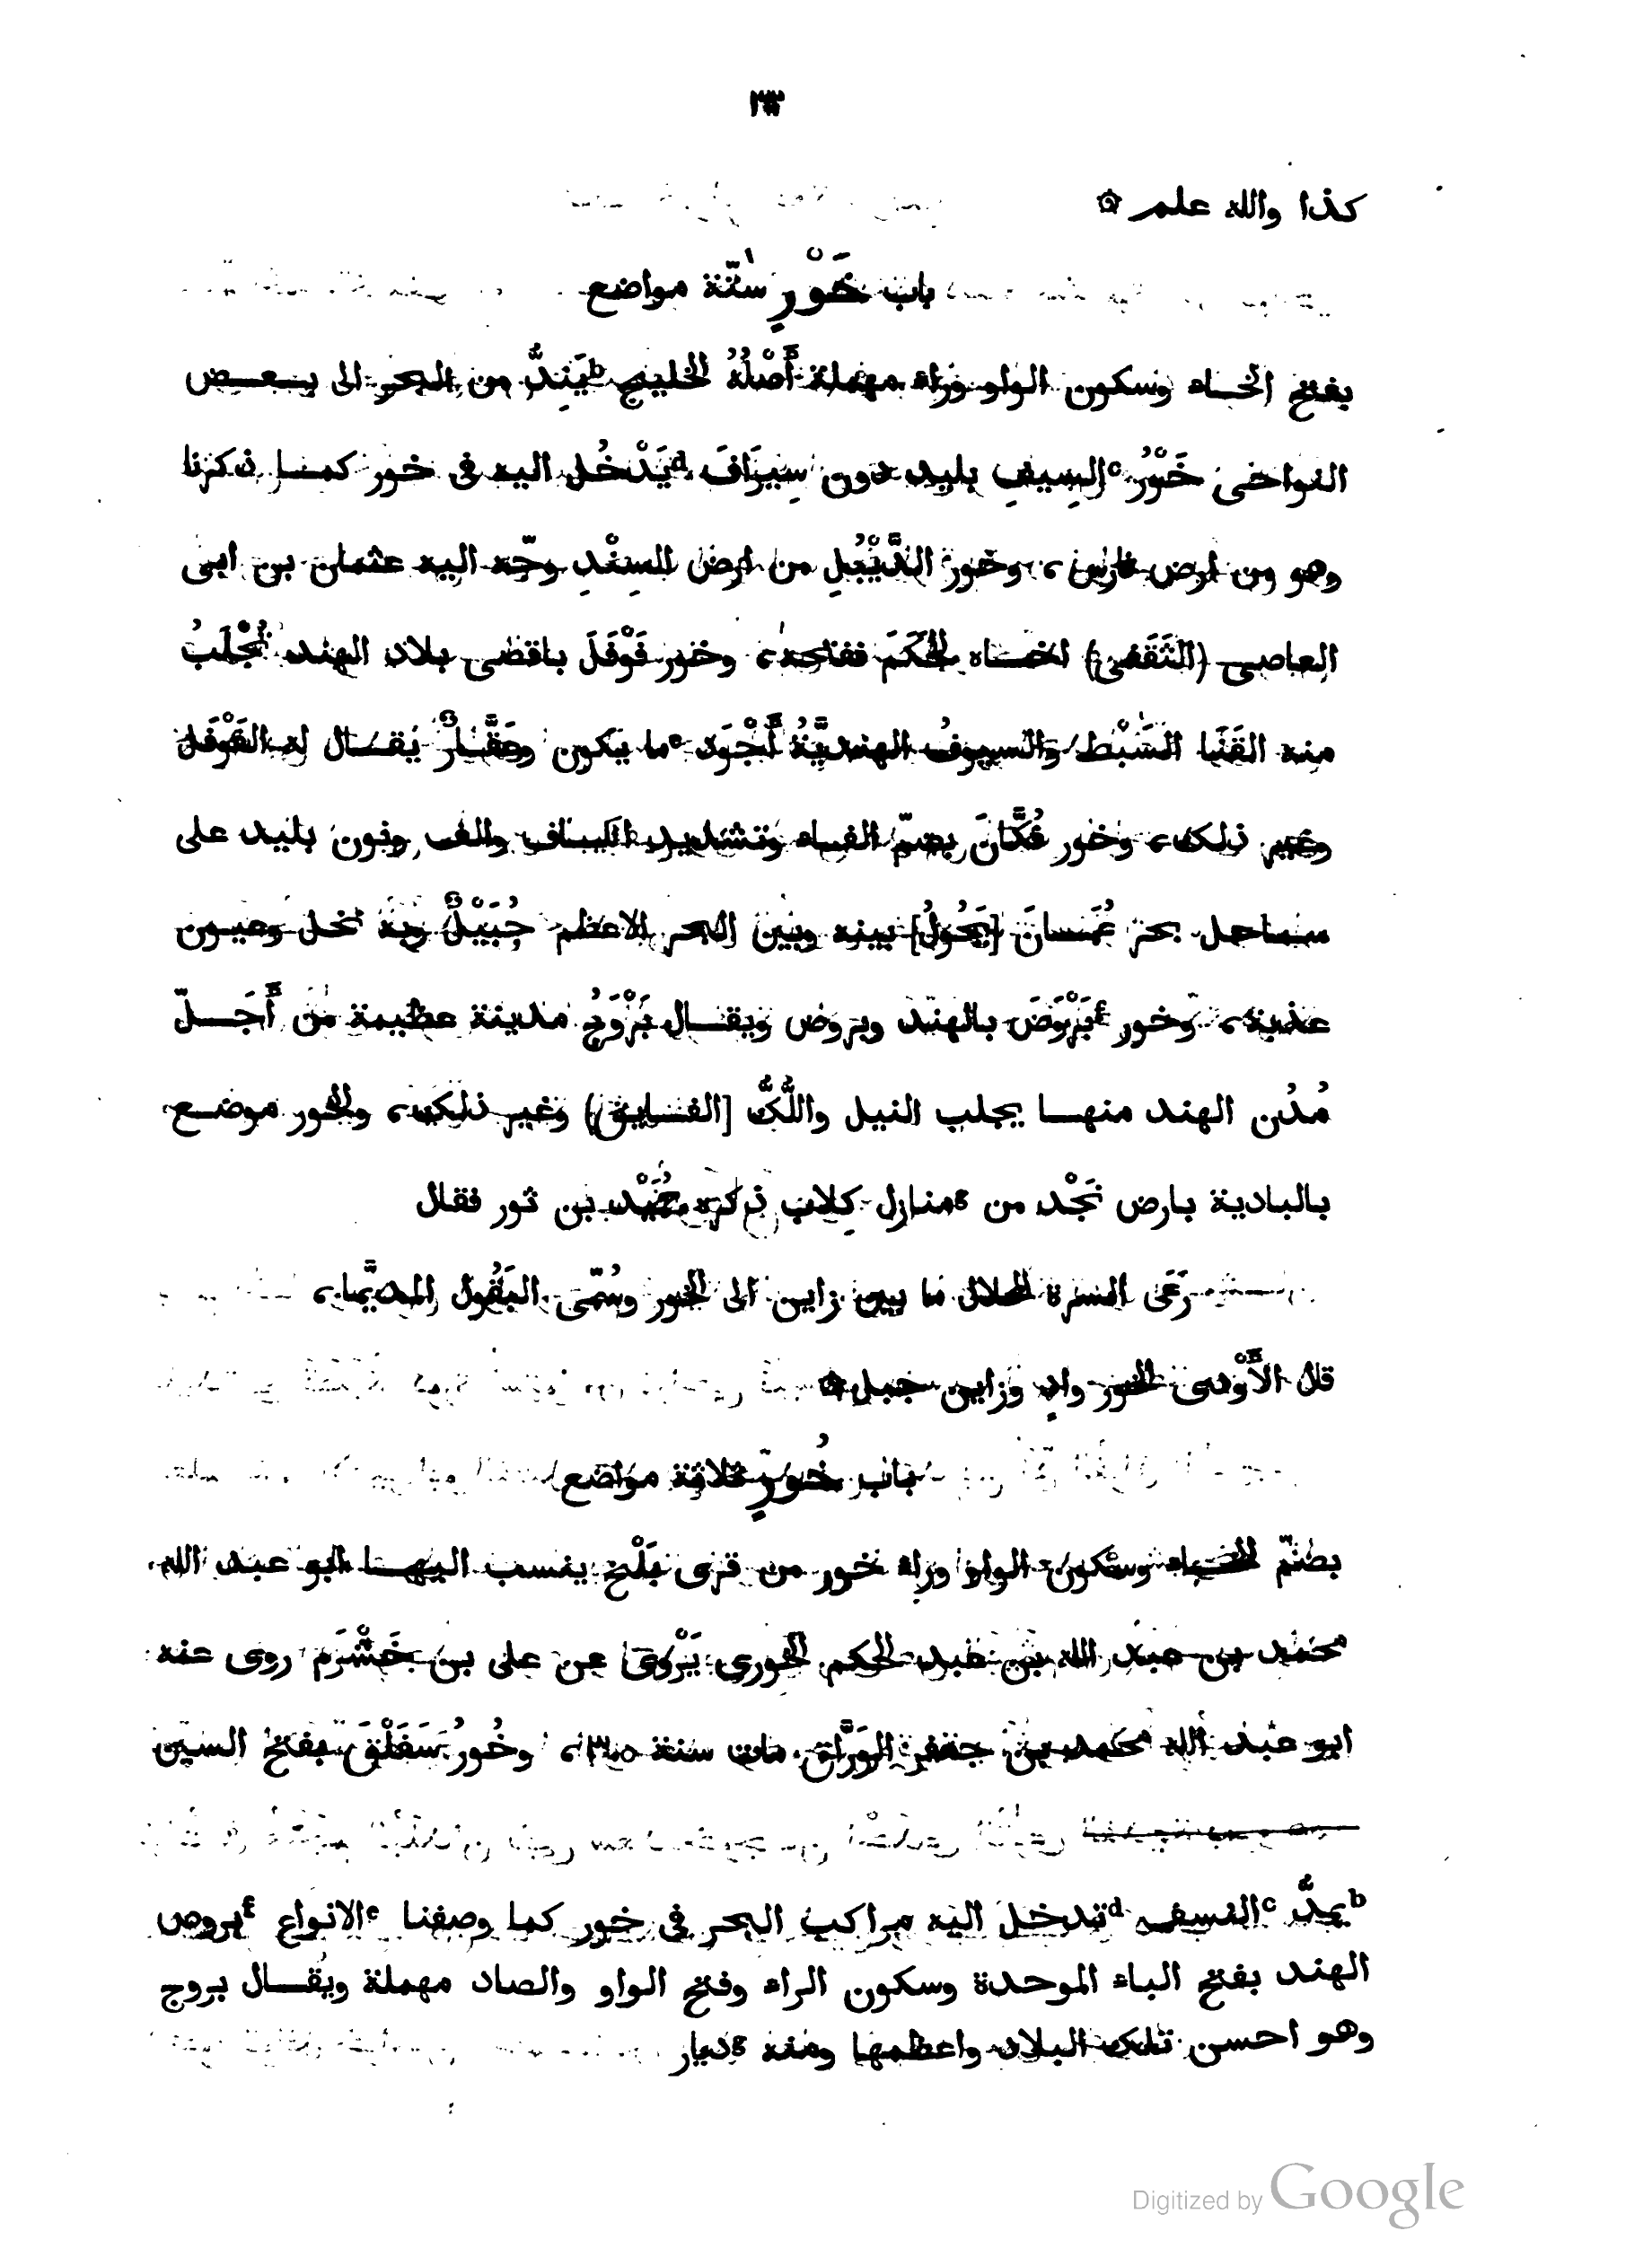 كذا والله علم ۞
باب خَوْرٍ ستّة مواضع
بفتح الخاء وسكون الواو وراء مهملة أَصْلُهُ الخليج bيَنِدُّ من البحر الى بعض
النواحى خَوْرُ cالسِيفِ بليد دون سِيرَافَ dيَدْخُل اليه فى خور كما ذكرنا
وهو من ارض فارس، وخور الدَّيْبُلِ من ارض السِنْدِ وجّه اليه عثمان بن ابى
العاصى (الثَقَفى) اخاه الحَكَمَ ففتحه، وخور فَوْفَلَ باقصى بلاد الهند تُجْلَبُ
منه القَنَا السَبْط والسيوفُ الهنديَّةُ أَجْوَد eما يكون وعَقَّارٌ يقال له الفَوْفَل
وغير ذلك، وخور فُكَّانَ بضمّ الفاء وتشديد الكاف والف ونون بليد على
ساحل بحر عُمَسانَ [يَحُولُ] بينه وبين البحر الاعظم جُبَيْلٌ وبه نخل وعيون
عذبة، وخور fبَرْوَضَ بالهند وبروض ويقال بَرْوَجُ مدينة عظيمة من أَجَلّ
مُدُن الهند منها يجلب النيل واللُّكُّ [الفايق) وغير ذلك، والخور موضع
بالبادية بارض نَجْد من gمنازل كِلاب ذكره حُمَيْد بن ثور فقال
رَعَى السرة المحلال ما بين زاين الى الخور وسُمّى البَقُول المديَّما،
قال الأَوْدى الخور وادٍ وزاين جبل ۞
باب خُورٍ ثلاثة مواضع
بضمّ الخاء وسكون الواو وراء خور من قرى بَلْخ ينسب اليها ابو عبد الله
محمد بن عبد الله بن عبد الحكم الخورى يَرْوى عن على بن خَشْرَم روى عنه
ابو عبد الله محمد بن جعفر الوَرَّاق مات سنة ٣٠٥، وخُورُ سَفَلْقَ بفتح السين
bيمدُّ cالسيف dتدخل اليه مراكب البحر فى خور كما وصفنا eالانواع fبروص
الهند بفتح الباء الموحدة وسكون الراء وفتح الواو والصاد مهملة ويقال بروج
وهو احسن تلك البلاد واعظمها ومنه gديار
Digitized by Google